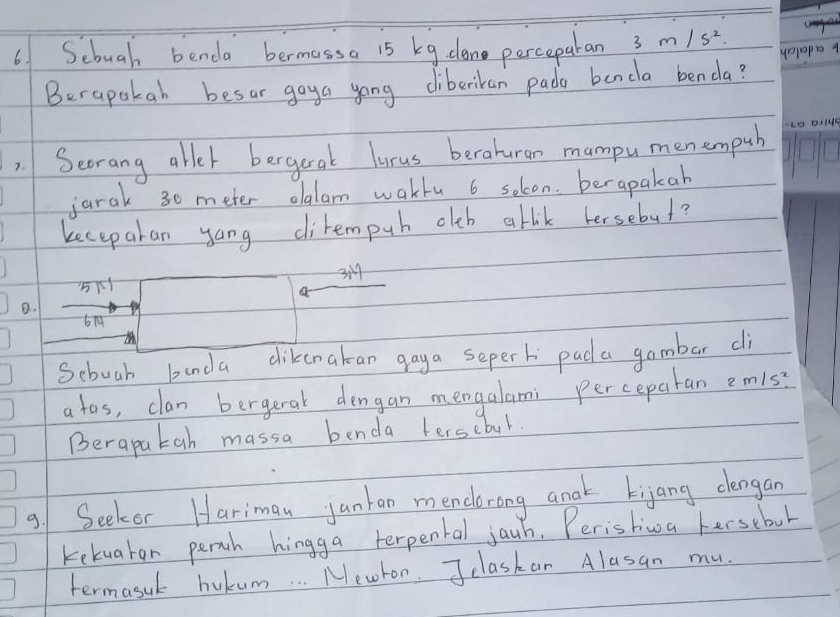 6. Sebuah benda bermassa 15 kg dene percepatan 3 m/s².
Berapakah besar gaya yang diberikan pada benda benda?
7. Seorang atlet bergerak lurus beraturan mampu menempuh
jarak 30 meter dalam waktu 6 sekon. berapakah
kecepatan yang ditempuh oleh atlik tersebut?
5N 3N
8.
6N
Sebuah benda dikenakan gaya seperti pada gambar di
atas, dan bergerak dengan mengalami percepatan 2 m/s²
Berapakah massa benda tersebut.
9. Seekor Harimau jantan mendorong anak kijang dengan
kekuatan penuh hingga terpental jauh. Peristiwa tersebut
termasuk hukum ... Newton. Jelaskan Alasan mu.